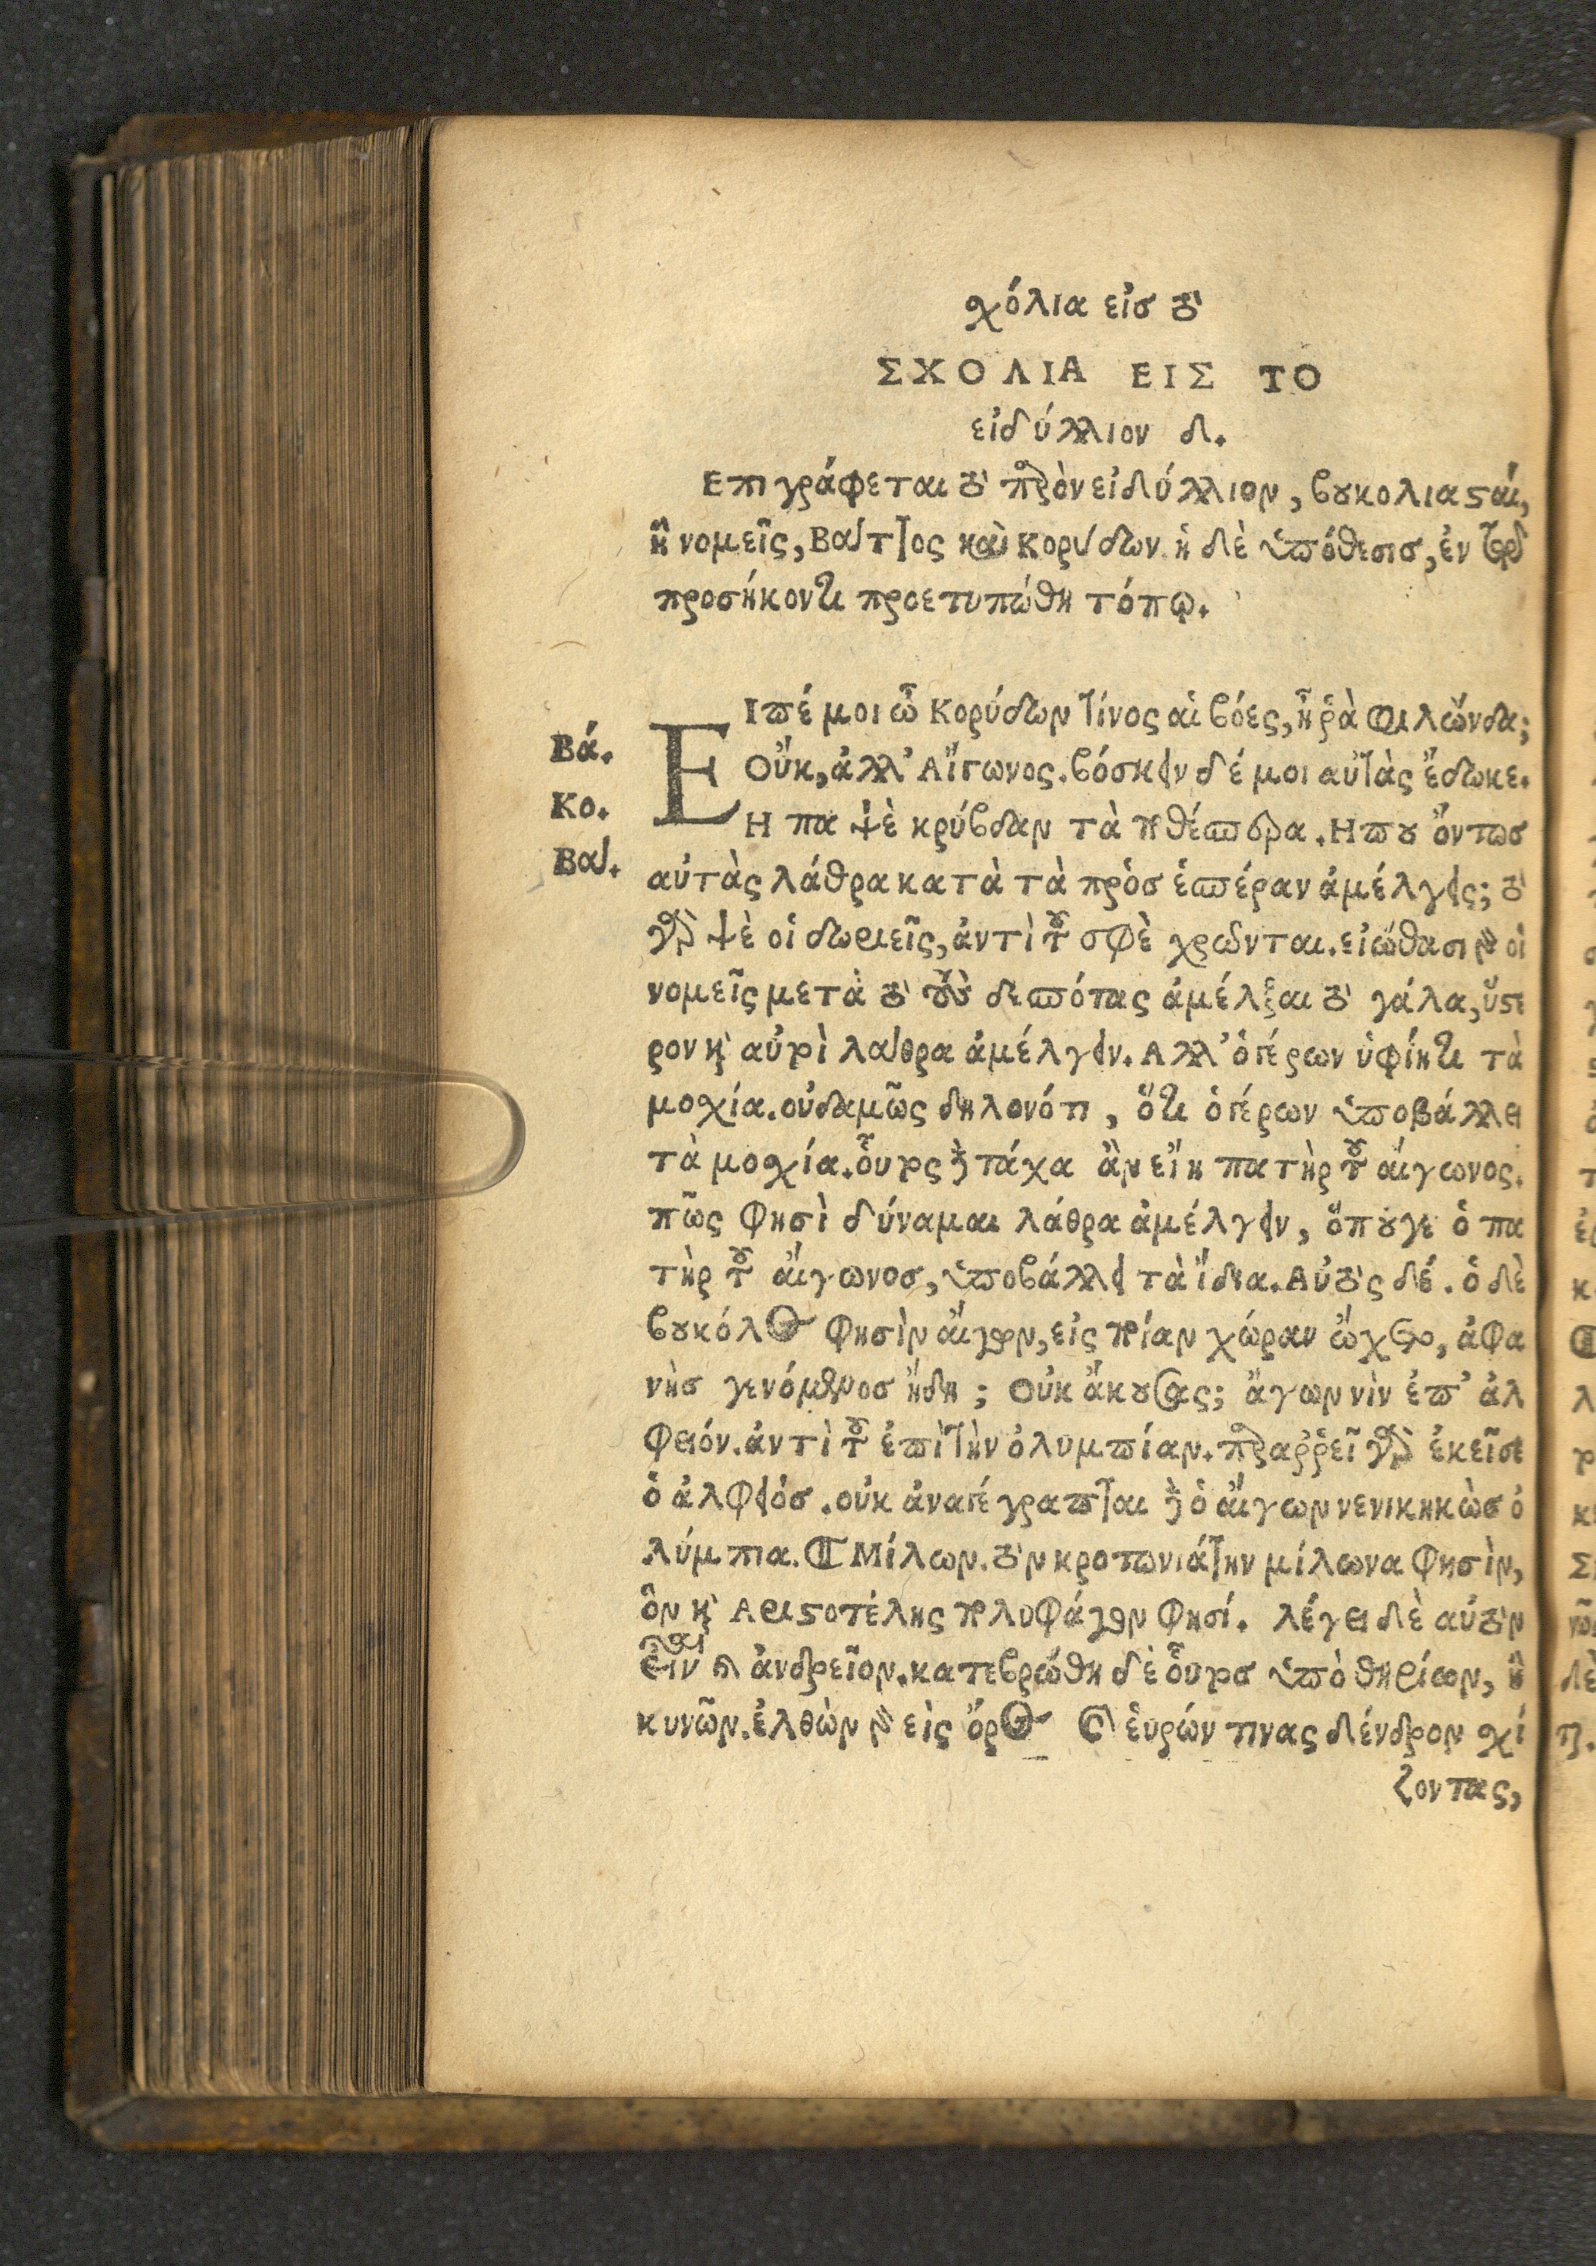 σχόλια εἰσ τὸ
ΣΧΟΛΙΑ ΕΙΣ ΤΟ
εἰδύλλιον δ.
Επιγράφεται τὸ παρὸν εἰδύλλιον, βουκολιασταί,
ἢ νομεῖς, Βάττος καὶ Κορύδων. ἡ δὲ ὑπόθεσισ, ἐν τῷ
προσήκοντι προετυπώθη τόπῳ.
Βά. ΕΙπέ μοι ὦ Κορύδων τίνος αἱ βόες, ἦ ῥὰ Φιλώνδα;
Κο. Οὔκ, ἀλλ’ Αἴγωνος. βόσκειν δέ μοι αὐτὰς ἔδωκε.
Βά. Η πα ψὲ κρύβδαν τὰ ποθέσπερα. Ηπου ὄντωσ
αὐτὰς λάθρα κατὰ τὰ πρὸσ ἑσπέραν ἀμέλγεις; τὸ
γὰρ ψὲ οἱ δωριεῖς, ἀντὶ τοῦ σφὲ χρῶνται. εἰώθασι γὰρ οἱ
νομεῖς μετὰ τὸ τοὺς δεσπότας ἀμέλξαι τὸ γάλα, ὕστε
ρον καὶ αὐτοὶ λάθρα ἀμέλγειν. Αλλ’ ὁ γέρων ὑφίητι τὰ
μοσχία. οὐδαμῶς δηλονότι, ὅτι ὁ γέρων ὑποβάλλει
τὰ μοσχία. οὗτος δὲ τάχα ἂν εἴη πατὴρ τοῦ αἴγωνος.
πῶς φησὶ δύναμαι λάθρα ἀμέλγειν, ὅπουγε ὁ πα
τὴρ τοῦ αἴγωνοσ, ὑποβάλλει τὰ ἴδια. Αὐτὸς δέ. ὁ δὲ
βουκόλος φησὶν αἴγων, εἰς ποίαν χώραν ᾤχετο, ἀφα
νὴσ γενόμενοσ ἤδη; Οὐκ ἄκουσας; ἄγων νὶν ἐπ’ ἀλ
φειόν. ἀντὶ τοῦ ἐπὶ τὴν ὀλυμπίαν. παραῤῥεῖ γὰρ ἐκεῖσε
ὁ ἀλφειόσ. οὐκ ἀναγέγραπται δὲ ὁ αἴγων νενικηκὼσ ὀ
λύμπια. ¶ Μίλων. τὸν κροτωνιάτην μίλωνα φησὶν,
ὃν καὶ Αριστοτέλης πολυφάγον φησί. λέγει δὲ αὐτὸν
εἶναι καὶ ἀνδρεῖον. κατεβρώθη δὲ οὗτοσ ὑπὸ θηρίων, ἢ
κυνῶν. ἐλθὼν γὰρ εἰς ὄρος καὶ εὑρών τινας δένδρον σχί
ζοντας,